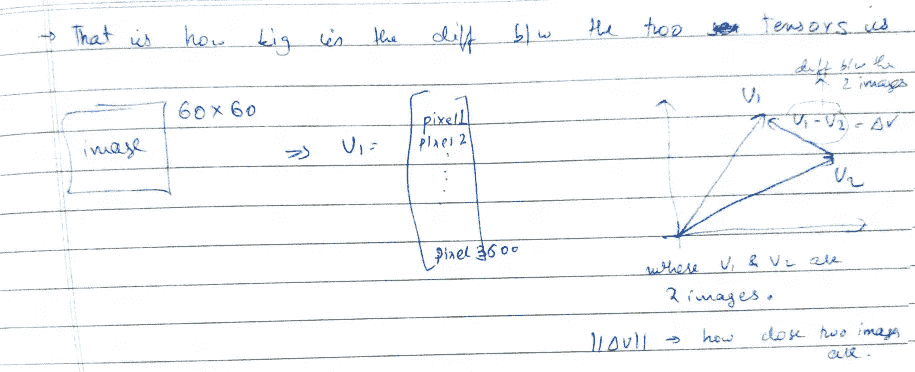 → That is how big is the diff b/w the two tensors is
image
60×60
⇒ V1 =
pixel 1
pixel 2
pixel 3600
diff b/w the
2 images
V1
V1 - V2 = ΔV
V2
where V1 & V2 are
2 images.
||ΔV|| → how close two images
are.